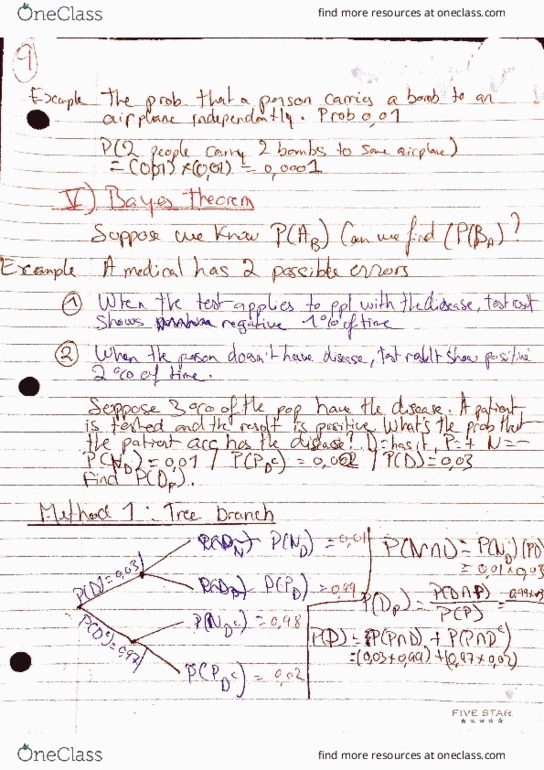 OneClass
find more resources at oneclass.com
9
Example The prob that a person carries a bomb to an
airplane independently. Prob 0,01
P(2 people carry 2 bombs to same airplane)
= (0,01) x (0,01) = 0,0001
V) Bayes theorem
Suppose we know P(A_B) Can we find (P(B_A)?
Example A medical has 2 possible errors
① When the test applies to ppl with the disease, test
shows negative 1% of time
② When the person doesn't have disease, test result show positive
2% of time.
Suppose 3% of the pop have the disease. A patient
is tested and the result is positive. What's the prob that
the patient acc has the disease? D=has it, P=+ N=-
P(N_D) = 0,01 / P(P_Dᶜ) = 0,002 / P(D) = 0,03
Find P(D_P).
Method 1: Tree branch
P(D)=0,03
P(Dᶜ)=0,97
P(N_D) = 0,01
P(P_D) = 0,99
P(N_Dᶜ) = 0,98
P(P_Dᶜ) = 0,02
P(N∩D) = P(N_D)(PD)
= 0,01 x 0,03
P(D_P) = P(D∩P)/P(P) = 0,99x03
P(P) = P(P∩D) + P(P∩Dᶜ)
= (0,03 x 0,99) + (0,97 x 0,02)
FIVE STAR
OneClass
find more resources at oneclass.com